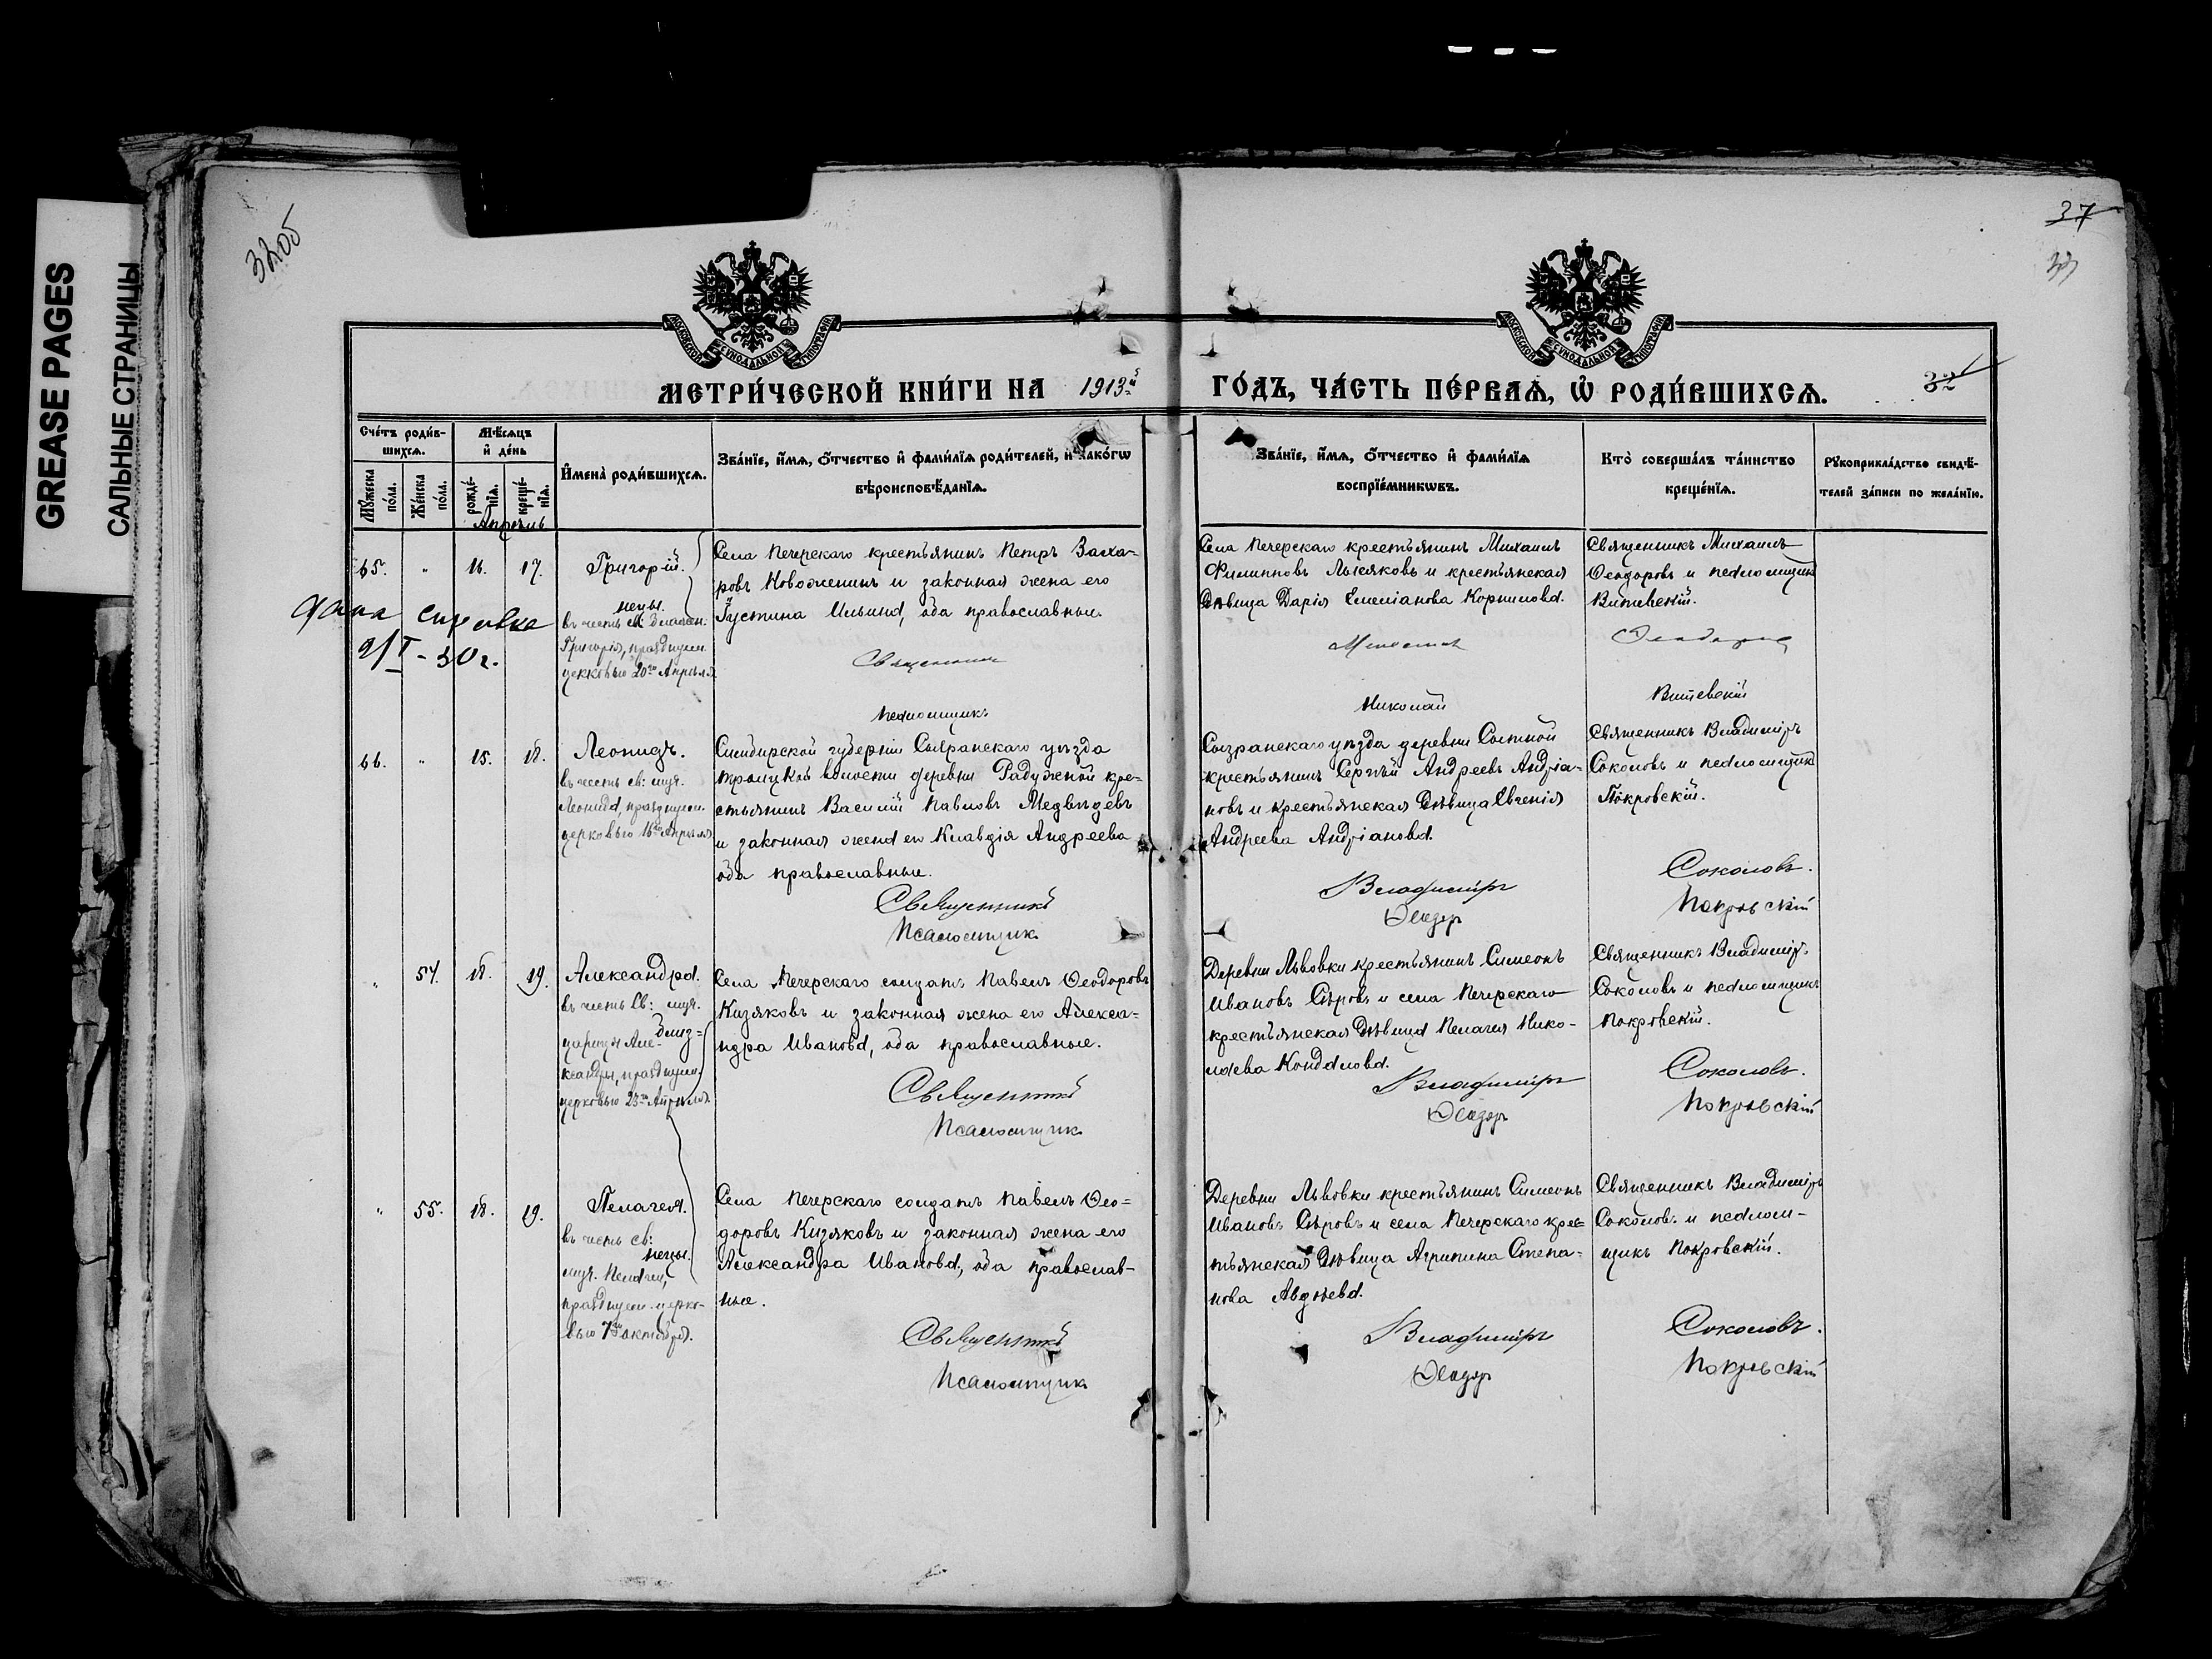 GREASE PAGES
САЛЬНЫЕ СТРАНИЦЫ
37
32
МЕТРИ́ЧЕСКОЙ КНИ́ГИ НА 1913й
ГО́ДЪ, ЧА́СТЬ ПЕ́РВАѦ, Ѡ҆ РОДИ́ВШИХСѦ.
Сче́тъ роди́в-
шихсѧ.
Мꙋ́жеска по́ла.
Же́нска по́ла.
Мѣ́сѧцъ
и҆ де́нь
рожде́-нїѧ.
креще́-нїѧ.
И҆мена̀ роди́вшихсѧ.
Зва́нїе, и҆́мѧ, ѻ҆́тчество и҆ фами́лїѧ роди́телей, и҆ како́гѡ
вѣроисповѣ́данїѧ.
Зва́нїе, и҆́мѧ, ѻ҆́тчество и҆ фами́лїѧ
воспрїе́мникѡвъ.
Кто̀ соверша́лъ та́инство
креще́нїѧ.
Рꙋкоприкла́дство свидѣ́-
телей за́писи по жела́нїю.
Апрѣль
65. " 16. 17.
Григорій.
въ честь св.
Григорія, празднуем.
церковью 20го Апрѣля
дана справка
9/I - 30 г.
Села Печерскаго крестьянинъ Петръ Заха-
ровъ Новоженинъ и законная жена его
Іустина Ильина, оба православные.
Священникъ
Псаломщикъ
Села Печерскаго крестьянинъ Михаилъ
Филипповъ Лысяковъ и крестьянская
дѣвица Дарія Емеліанова Корнилова.
Михаилъ
Николай
Священникъ Михаилъ
Ѳеодоровъ и псаломщикъ
Витевскій.
Ѳеодоровъ
Витевскій
66. " 15. 18.
Леонидъ.
въ честь св: муч.
Леонида, празднуем.
церковью 16го Апрѣля
Симбирской губерніи Сызранскаго уѣзда
Троицкой волости деревни Радужной кре-
стьянинъ Василій Павловъ Медвѣдевъ
и законная жена его Клавдія Андреева
оба православные.
Священникъ
Псаломщик
Сызранскаго уѣзда деревни
крестьянинъ Сергѣй Андреевъ Андріа-
новъ и крестьянская дѣвица Евгенія
Андреева Андріанова.
Владиміръ
Ѳеодор
Священникъ Владиміръ
Соколовъ и псаломщикъ
Покровскій.
Соколовъ.
Покровскій
" 54. 18. 19.
Александра.
въ честь Св: муч.
царицы Але-
ксандры, празднуем.
церковью 23го Апрѣля
близ-
нецы.
Села Печерскаго солдатъ Павелъ Ѳеодоровъ
Кизяковъ и законная жена его Алекса-
ндра Иванова, оба православные.
Священникъ
Псаломщик
Деревни Львовки крестьянинъ Симеонъ
Ивановъ Сѣровъ и села Печерскаго
крестьянская дѣвица Пелагея Нико-
лаева Кондалова.
Владиміръ
Ѳеодор
Священникъ Владиміръ
Соколовъ и псаломщикъ
Покровскій.
Соколовъ.
Покровскій
" 55. 18. 19.
Пелагея.
въ честь св:
муч. Пелагеи,
празднуем. церко-
вью 7го октября.
Села Печерскаго солдатъ Павелъ Ѳео-
доровъ Кизяковъ и законная жена его
Александра Иванова, оба православ-
ные.
Священникъ
Псаломщик
Деревни Львовки крестьянинъ Симеонъ
Ивановъ Сѣровъ и села Печерскаго крес-
тьянская дѣвица Агрипина Степа-
нова Авдѣева.
Владиміръ
Ѳеодор
Священникъ Владиміръ
Соколовъ и псалом-
щикъ Покровскій.
Соколовъ.
Покровскій